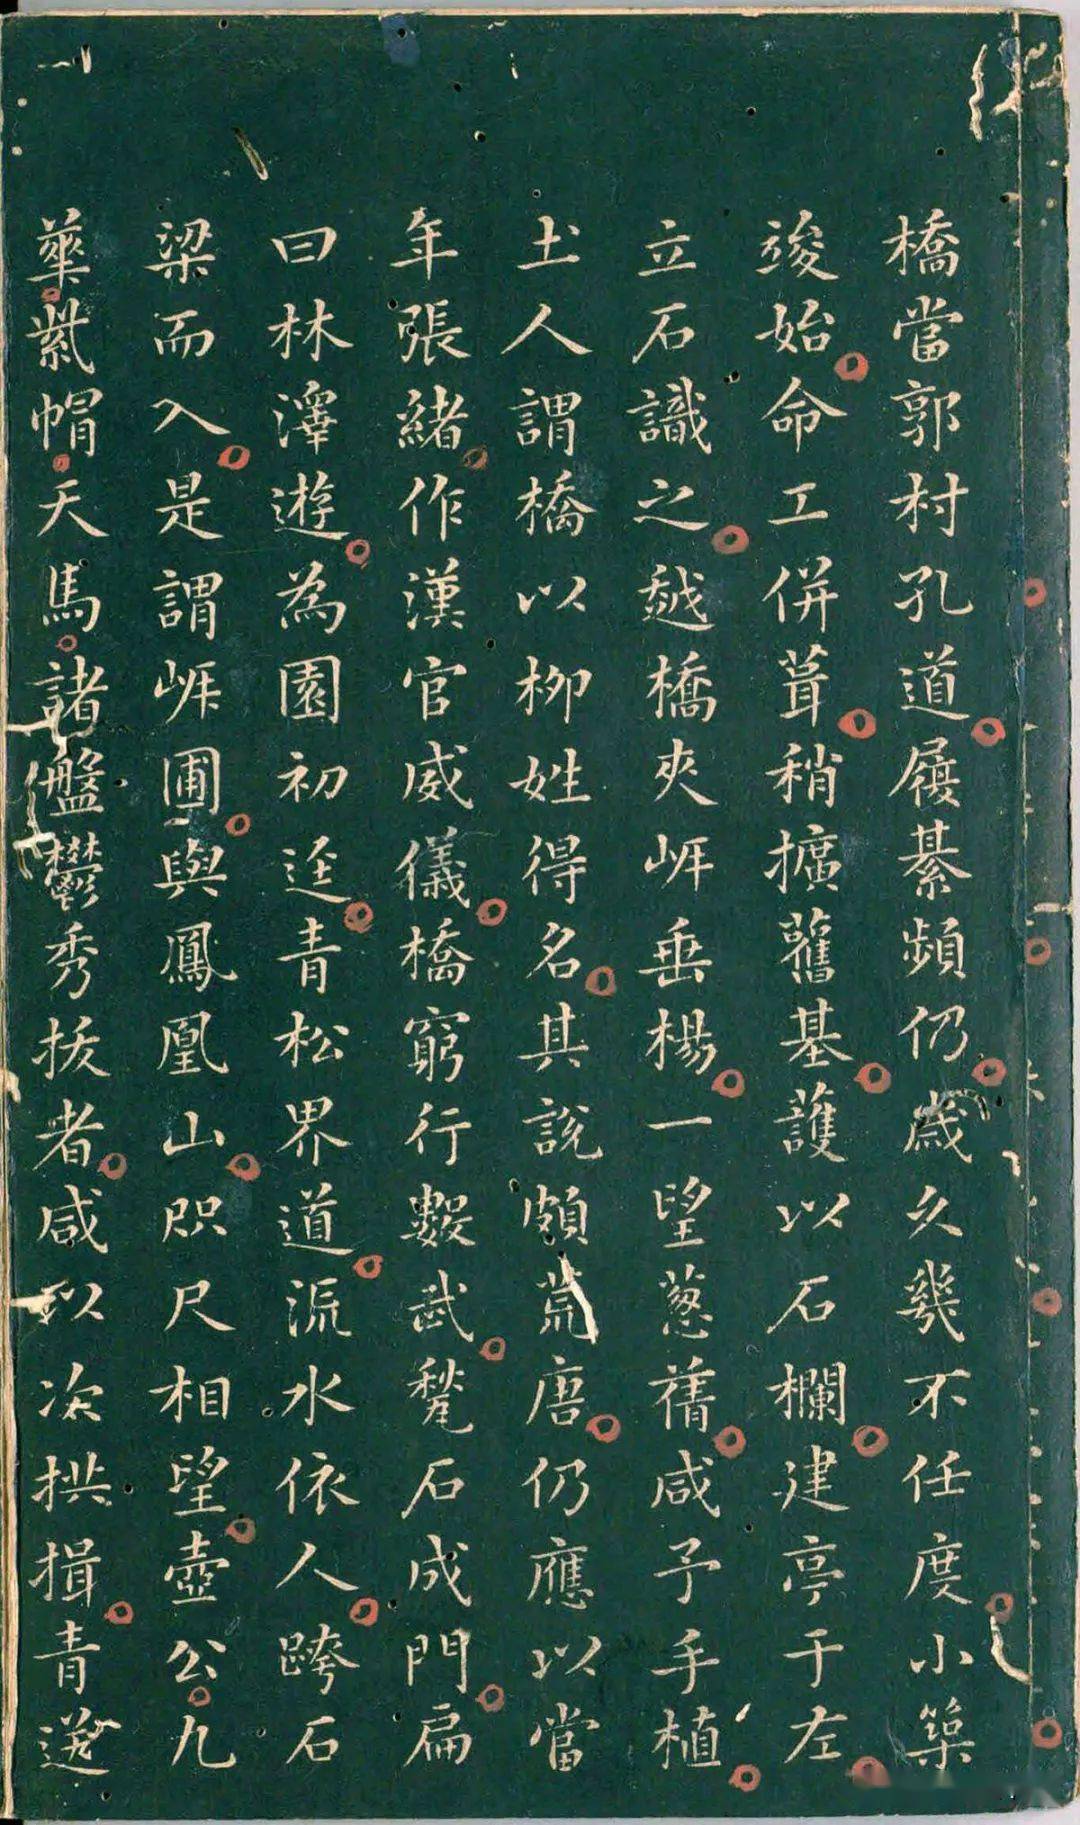 橋當郭村孔道履綦頻仍歲久幾不任度小築
竣始命工併葺稍擴舊基護以石欄建亭于左
立石識之越橋夾岸垂楊一望葱蒨咸予手植
土人謂橋以柳姓得名其說頗荒唐仍應以當
年張緒作漢官威儀橋窮行數武甃石成門扁
曰林澤遊為園初逕青松界道流水依人跨石
梁而入是謂岸圃與鳳凰山咫尺相望壺公九
華紫帽天馬諸盤鬱秀拔者咸以次拱揖青送